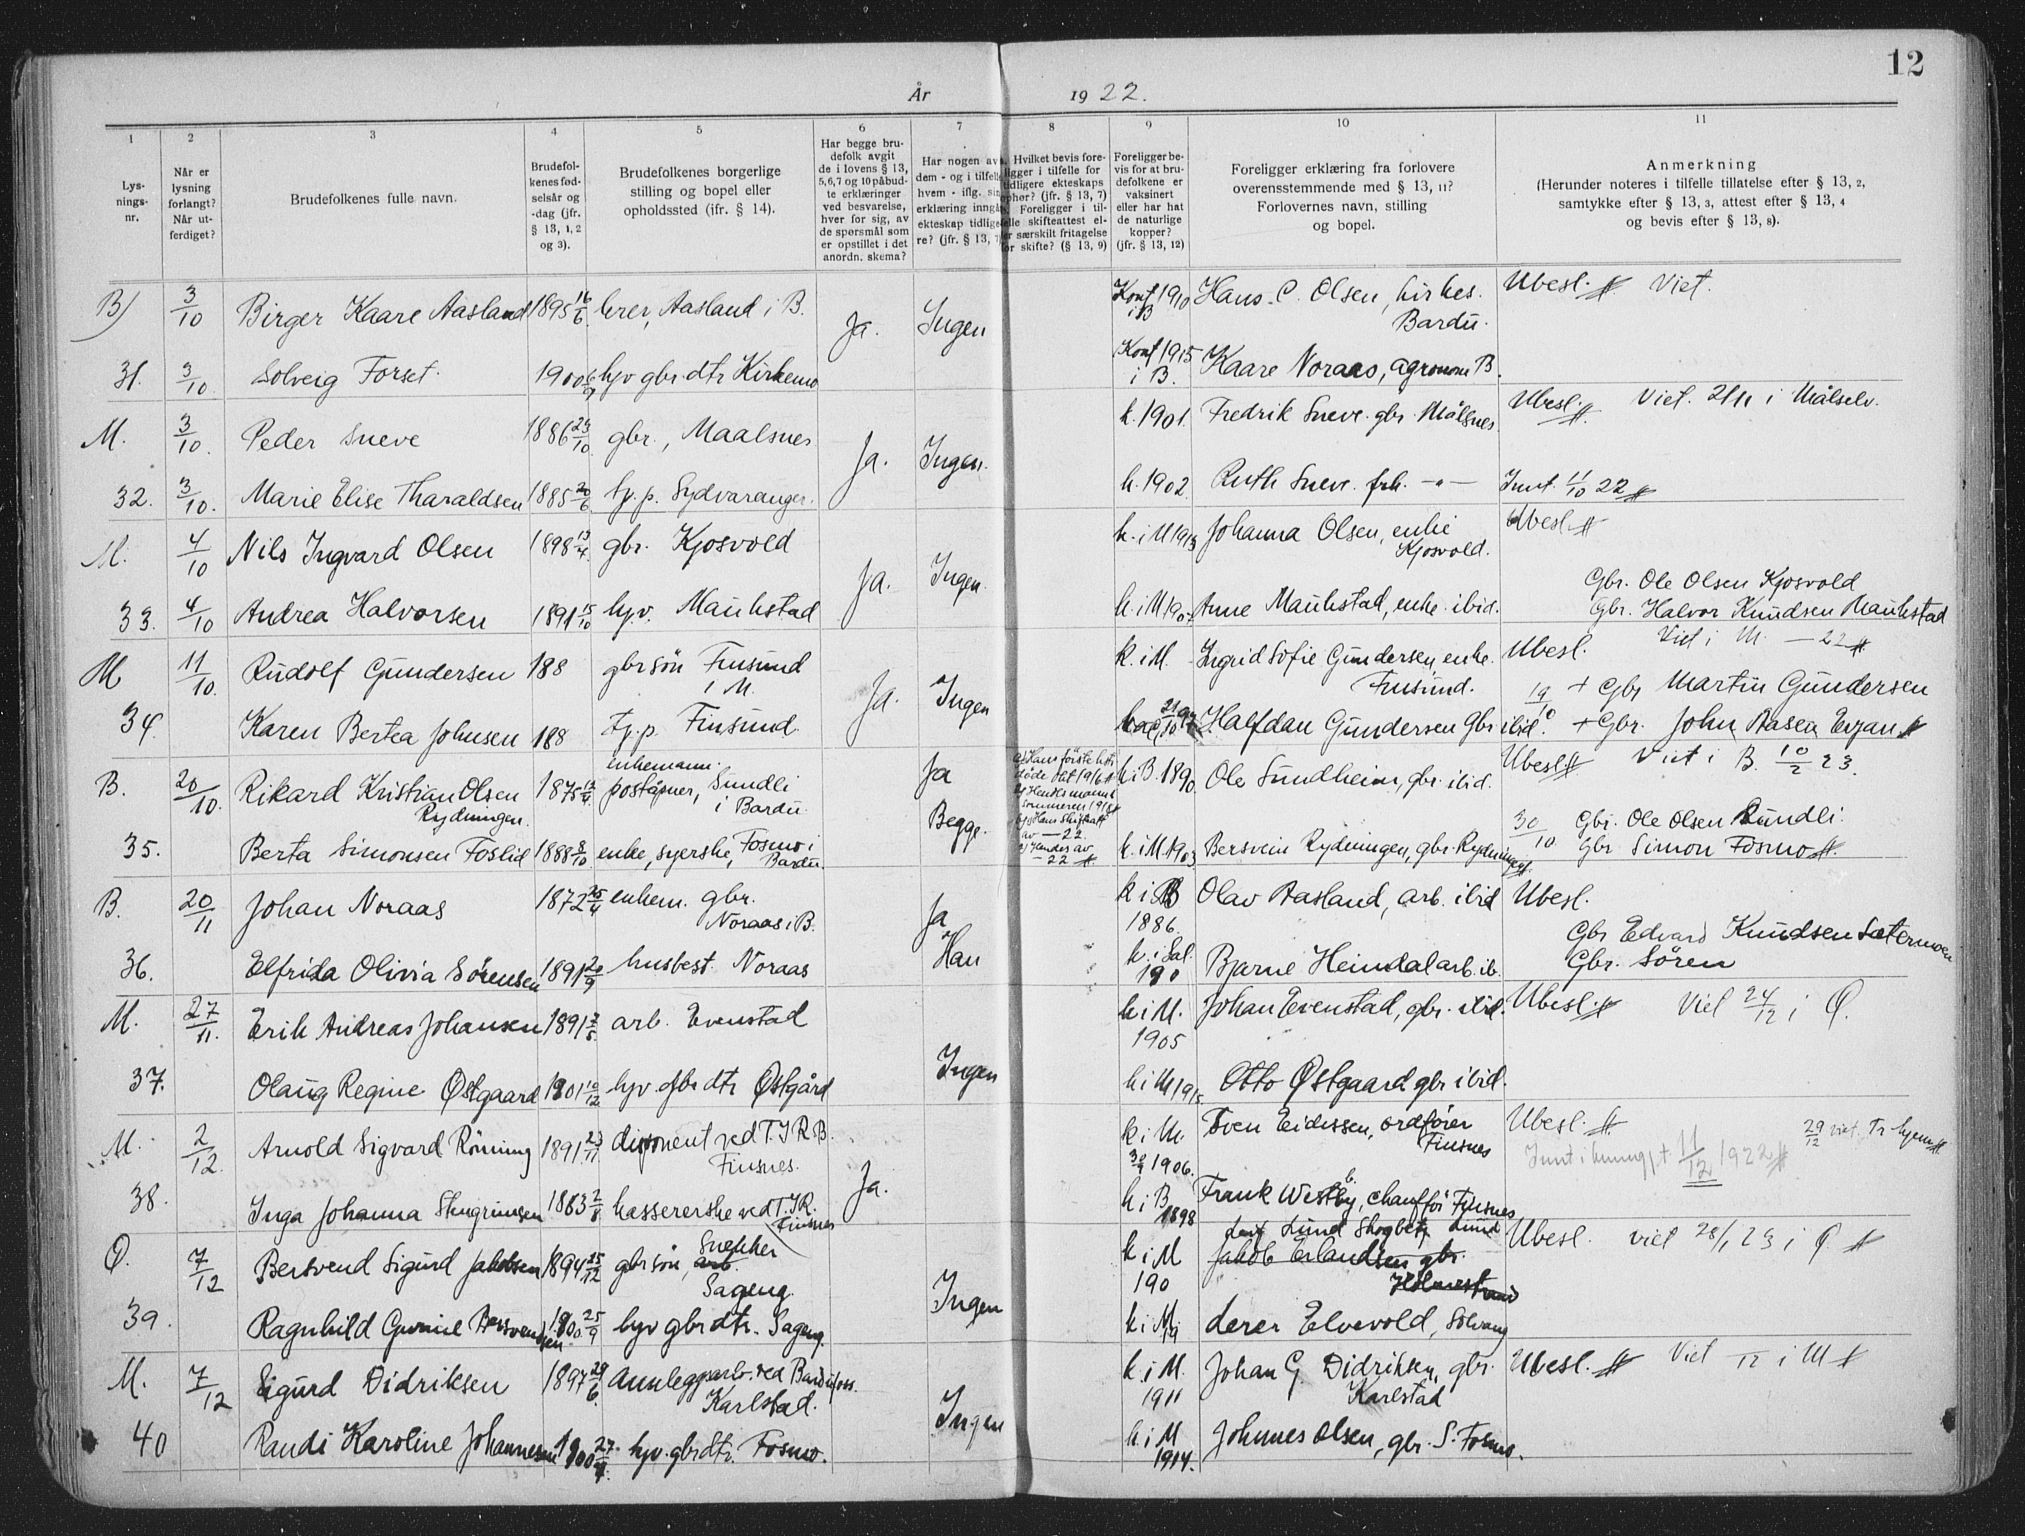 12
År 1922.
1 2 3 4 5 6 7 8 9 10 11
Lys-
nings-
nr.
Når er
lysning
forlangt?
Når ut-
ferdiget?
Brudefolkenes fulle navn.
Brudefol-
kenes fød-
selsår og
-dag (jfr.
§ 13, 1, 2
og 3).
Brudefolkenes borgerlige
stilling og bopel eller
opholdssted (ifr. § 14).
Har begge bru-
defolk avgit
de i lovens § 13,
5,6,7 og 10 påbud-
te erklæringer
ved besvarelse,
hver for sig, av
de spørsmål som
er opstillet i det
anordn. skema?
Har nogen av
dem - og i tilfelle
hvem - iflg.
erklæring inngå
ekteskap tidlige-
re? (jfr. § 13,
Hvilket bevis fore-
ligger i tilfelle for
tidligere ekteskaps
ophør? (jfr. § 13, 7)
Foreligger i til-
felle skifteattest el-
er særskilt fritagelse
for skifte? (§ 13, 9)
Foreligger be-
vis for at bru-
defolkene er
vaksinert
eller har hat
de naturlige
kopper?
(jfr. § 13, 12)
Foreligger erklæring fra forlovere
overensstemmende med § 13, 11?
Forlovernes navn, stilling
og bopel.
Anmerkning
(Herunder noteres i tilfelle tillatelse efter § 13, 2,
samtykke efter § 13, 3, attest efter § 13, 4
og bevis efter § 13, 8).
B) 3/10 Birger Kaare Aasland 1895 16/6 lærer, Aasland i B. Ja. Ingen Konf 1910 i B Hans C. Olsen, kirkes. Bardu. Ubesl. Viet.
31. 3/10 Solveig Forset. 1900 hjv gbr. dtr Kirkemo Konf 1915 i B. Kaare Noraas, agronom B.
M. 3/10. Peder Sneve 1886 29/10 gbr., Maalsnes Ja. Ingen. k. 1901. Fredrik Sneve. gbr Målsnes Ubesl. Viet. 2/11 i Målselv.
32. 3/10. Marie Elise Tharaldsen 1885 20/6 tj. p. Sydvaranger. k. 1902 Ruth Sneve. frk. -"- 22
M. 4/10 Nils Ingvard Olsen 1898 13/4 gbr. Kjosvold Ja. Ingen. k. i M 1913 Johanna Olsen, enke Kjosvold. Ubesl.
33. 4/10 Andrea Halvorsen 1891 15/10 hjv. Maukstad k. i M 1907 Anne Maukstad, enke. ibid. Gbr. Ole Olsen Kjosvold
Gbr. Halvor Knudsen Maukstad
M 11/10. Rudolf Gundersen 188 gbrsön Finsund i M. Ja. Ingen k. i M. Ingrid Sofie Gundersen, enke. Finsund. Ubesl. Viet i M. - 22
34. Karen Bertea Johnsen 188 tj. p. Finsund. Halfdan Gundersen Gbr ibid. 19/10 + Gbr Martin Gundersen
+ Gbr. John Aasen
B. 20/10. Rikard Kristian Olsen Rydningen. 1875 enkemann. poståpner, Sundli i Bardu. Ja Begge. k i B. 1890 Ole Sundheim, gbr. ibid. Ubesl. Viet i B. 10/2 23.
35. Berta Simonsen Foslid 1888 8/10 enke, syerske, Fosmo i Bardu. k. i M. 1903 Bersvein Rydningen, gbr. Rydningen 30/10 Gbr. Ole Olsen Sundli.
Gbr Simon Fosmo.
B. 20/11 Johan Noraas 1872 25/4 enkem. gbr. Noraas i B. Ja Han k i B 1886. Olav Aasland, arb. ibid Ubesl.
36. Elfrida Olivia Sörensen 1891 29/9 husbest. Noraas k. i Sal. 190 Bjarne Heimdal arb. ib. Gbr Edvard Knudsen Sætermoen
Gbr. Sören
M. 27/11. Erik Andreas Johansen 1891 2/5 arb. Evenstad Ingen k i M. 1905 Johan Evenstad, gbr. ibid. Ubesl. Viet 24/12 i Ø.
37. Olaug Regine Østgaard 1901 10/12 hjv gbr dtr Østgård k i M 1915. Otto Østgaard gbr ibid.
M. 2/12. Arnold Sigvard Rönning 1891 23/11 disponent ved T.I.R.B. Finsnes. Ja. k i M. 1906. Sven Eidissen, ordfører Finsnes Ubesl. 11/12 1922 29/12 viet Tr
38. Inga Johanna Stengrimsen 1883 2/8 kassererske ved T.I.R. Finsnes k i B 1898 Frank Westby, chauffør Finsnes
Ø. 7/12 Bersvend Sigurd Jakobsen 1894 25/12 gbr sön, Snekker arb. Sageng. Ingen k i M 190 Lund Skogbetj Lund Jakob Erlandsen gbr. Holmestrand Ubesl. viet 28/1 23 i Ø
39. Ragnhild Gunnie Bersvendsen 1900 25/9 hjv gbr dtr. Sageng. k i M Lærer Elvevold, Solvang
M. 7/12 Sigurd Didriksen 1897 29/6. Annleggsarb. ved Bardufoss. Karlstad. Ingen k. i M. 1911 Johan G. Didriksen, gbr. Karlstad Ubesl. Viet /12 i M
40 Randi Karoline Johannesen 1900 hjv. gbr dtr. Fosmo. k i M 1914. Johnnes Olsen, gbr. S. Fosmo.